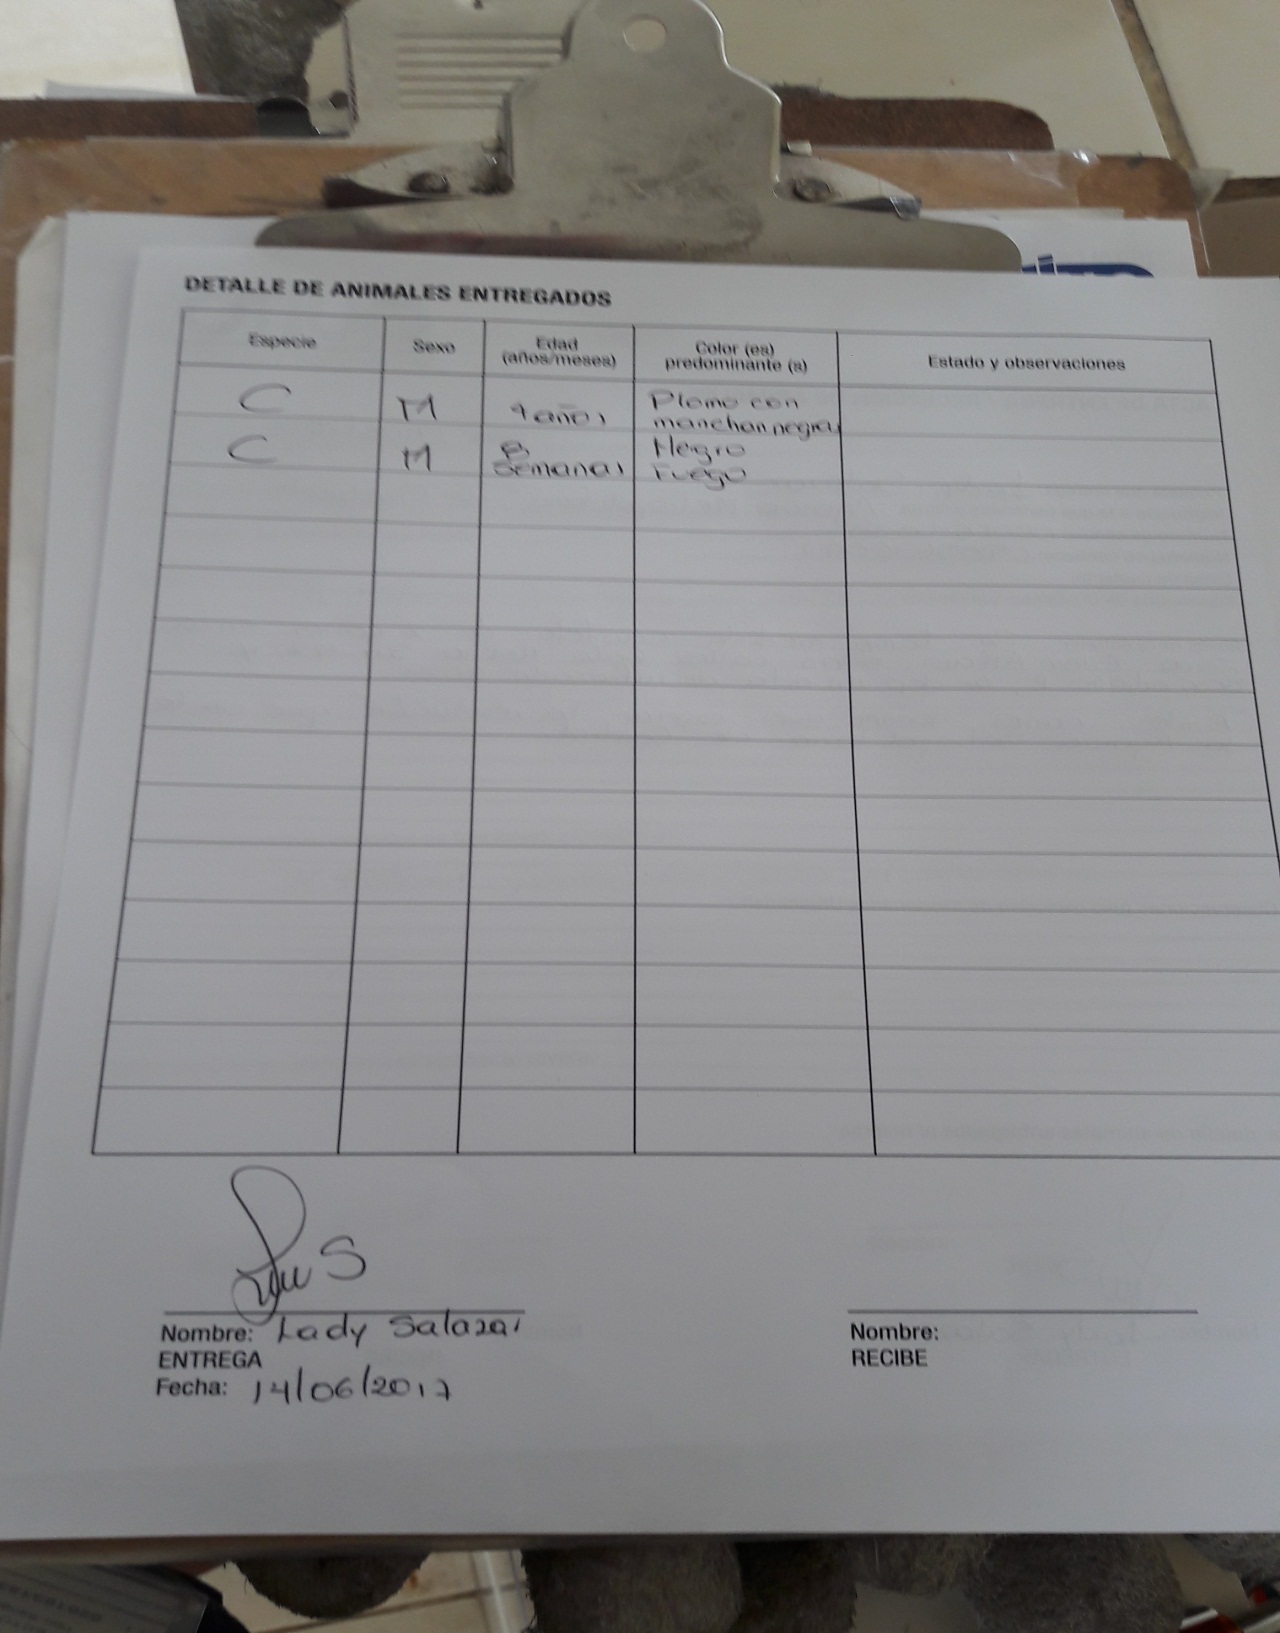 DETALLE DE ANIMALES ENTREGADOS
Especie Sexo Edad (años/meses) Color (es) predominante (s) Estado y observaciones
C M 4 años Plomo con
manchan negras
C M 8 Negro
semanas Fuego
S
Nombre: Lady Salazar
ENTREGA
Fecha: 14/06/2017
Nombre:
RECIBE